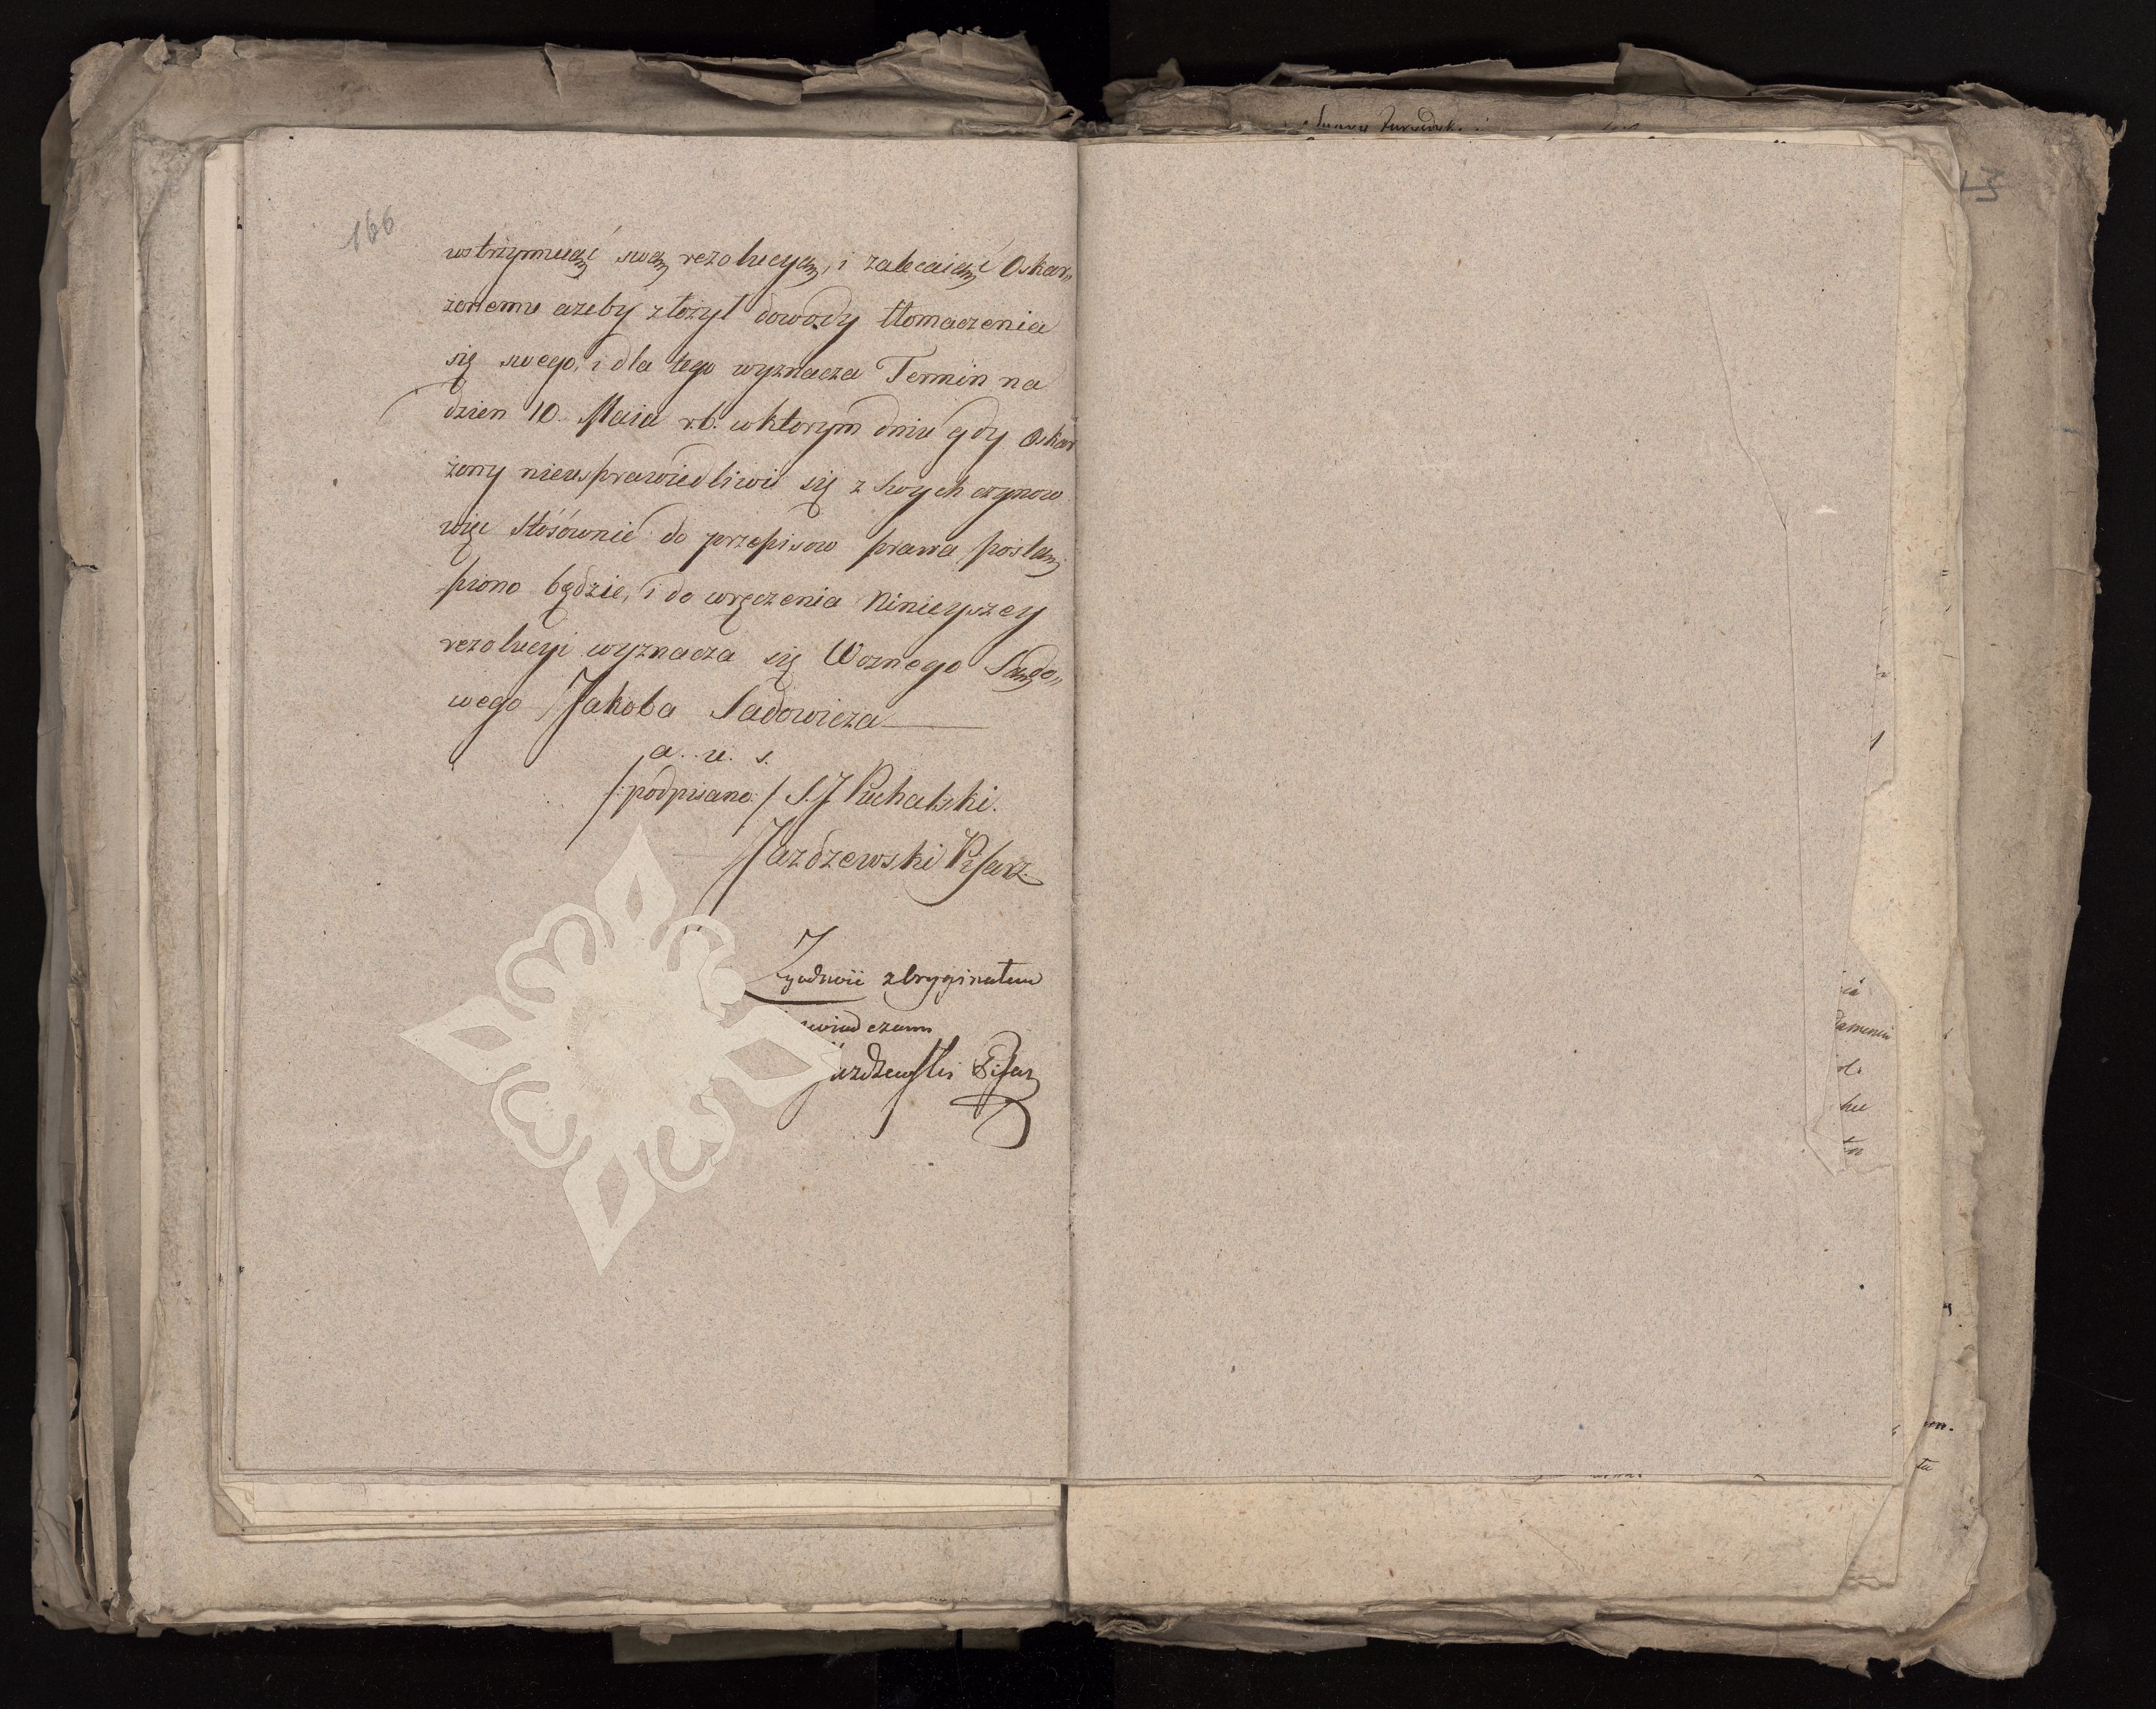 166
wstrzymuiąć swą rezolucyą, i zalecaiąć Oskar„
żonemu azeby złożył dowody tłomaczenia
się swego, i dla tego wyznacza Termin na
dzien 10. Maia r.b. w ktorym dniu gdy Oskar
żony nieusprawiedliwi się z swych czynow
więc Stósównie do przepisow prawa postą„
piono będzie, i do wręczenia Ninieyszey
rezolucyi wyznacza się Woznego Sądo„
wego Jakoba Sadowicza
a. u. s.
/:podpisano:/ S.J Puchalski.
Jazdzewski Pisarz.
Zgodnoié z Oryginałem
zaswiadczam
Jazdzewski Pisarz